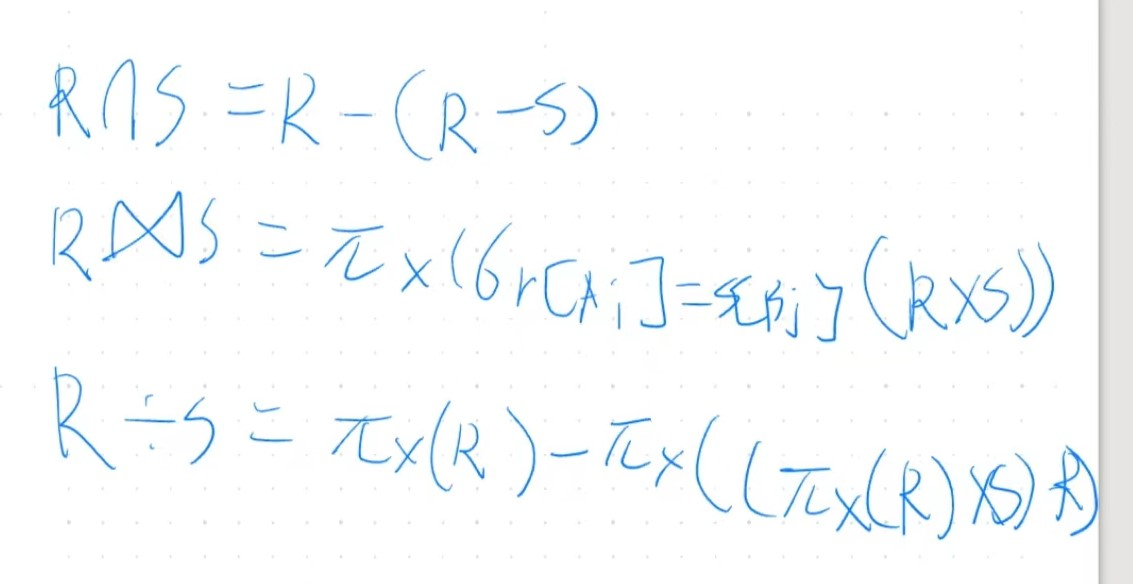 R∩S = R - (R - S)
R⋈S = πx(σr[Ai]=s[Bj] (R×S))
R÷S = πx(R) - πx((πx(R)×S) R)